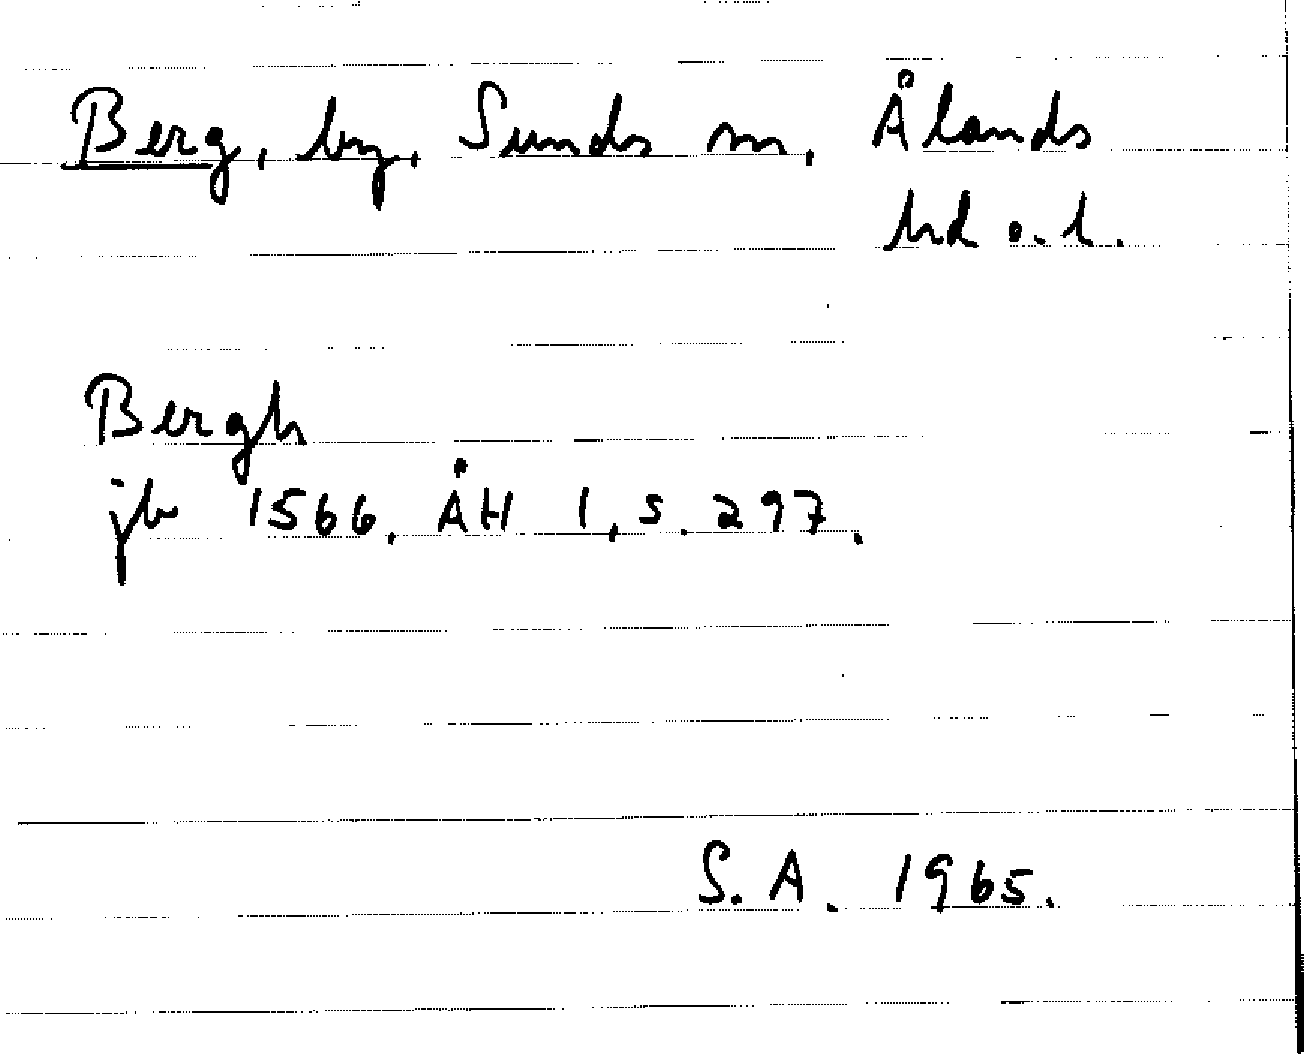 Berg, by, Sunds sn, Ålands
hd o. l.
Bergh
jb 1566, ÅH 1, s. 297.
S. A. 1965.